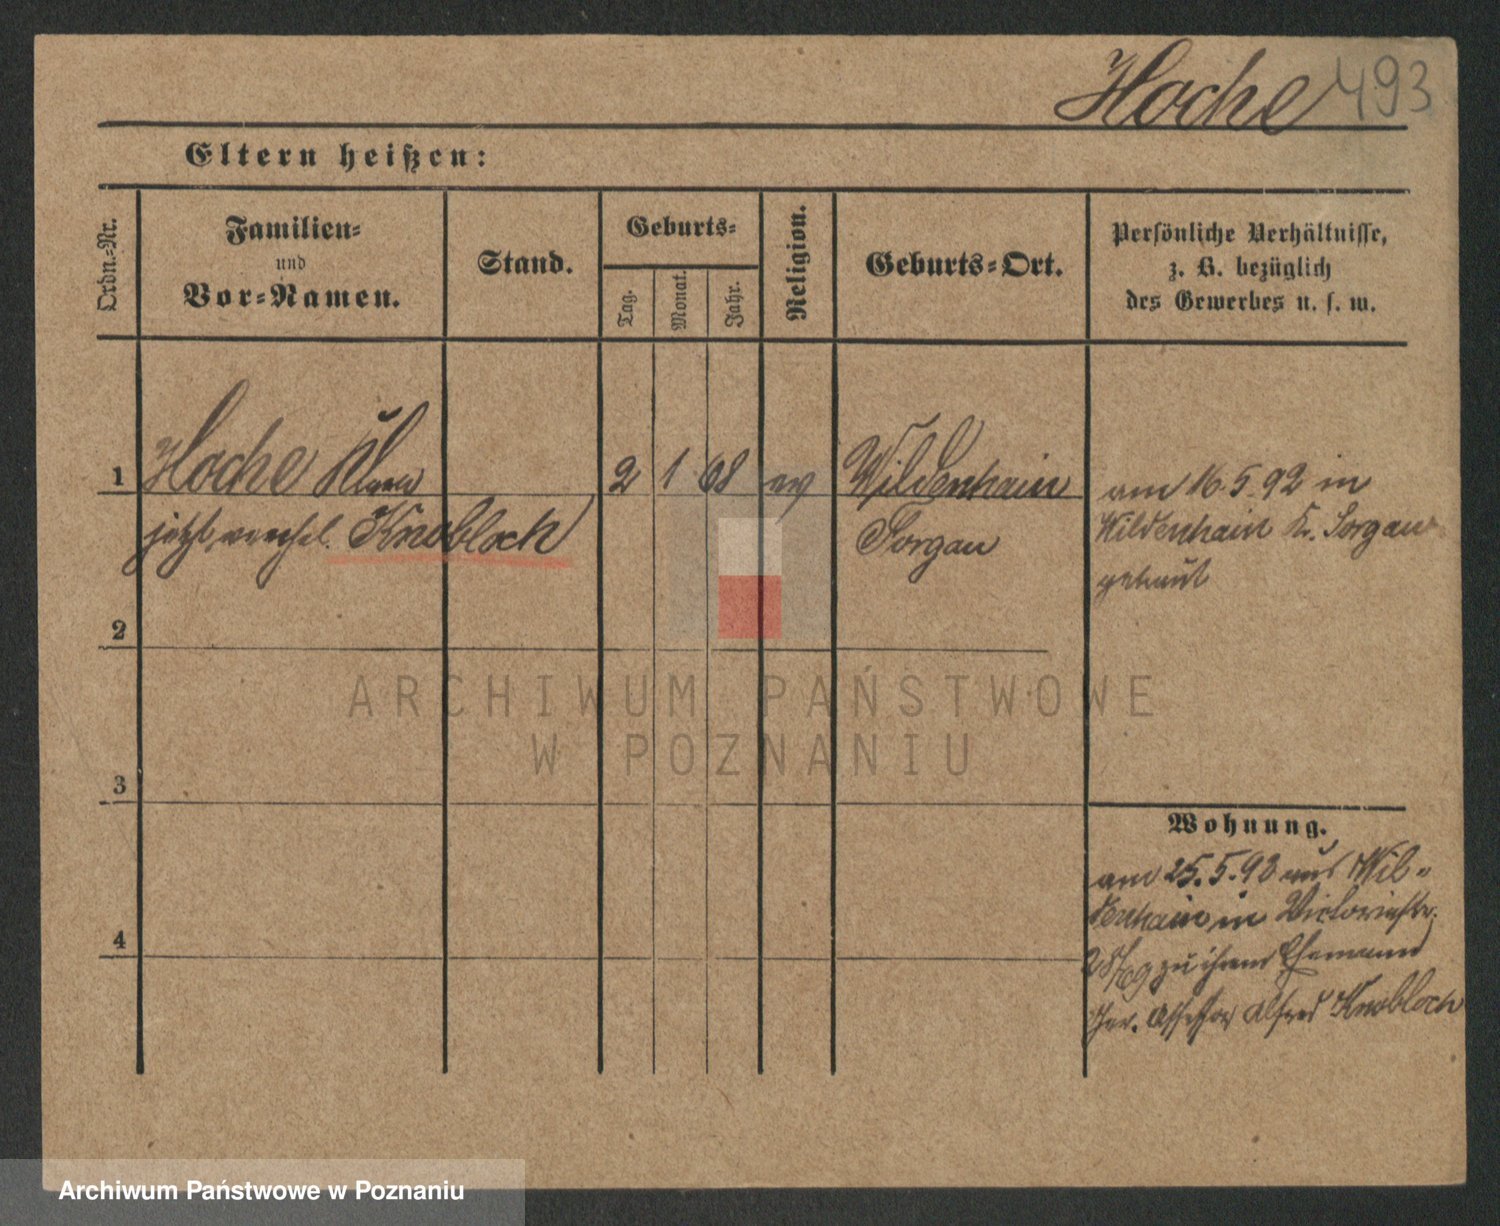 Hoche 493
Eltern heißen:
Ordn.-Nr.
Familien-
und
Vor-Namen.
Stand.
Geburts-
Tag.
Monat.
Jahr.
Religion.
Geburts-Ort.
Persönliche Verhältnisse,
z. B. bezüglich
des Gewerbes u. s. w.
1 Hoche Klara 2 1 68 ev Wildenhain
jetzt verehel. Knobloch Torgau
am 16.5.92 in
Wildenhain Kr. Torgau
getraut
2
3
4
Wohnung.
am 25.5.93 aus Wil-
denhain in Victoriastr.
zu ihrem Ehemann
Ger. Assessor Alfred Knobloch
ARCHIWUM PAŃSTWOWE
W POZNANIU
Archiwum Państwowe w Poznaniu